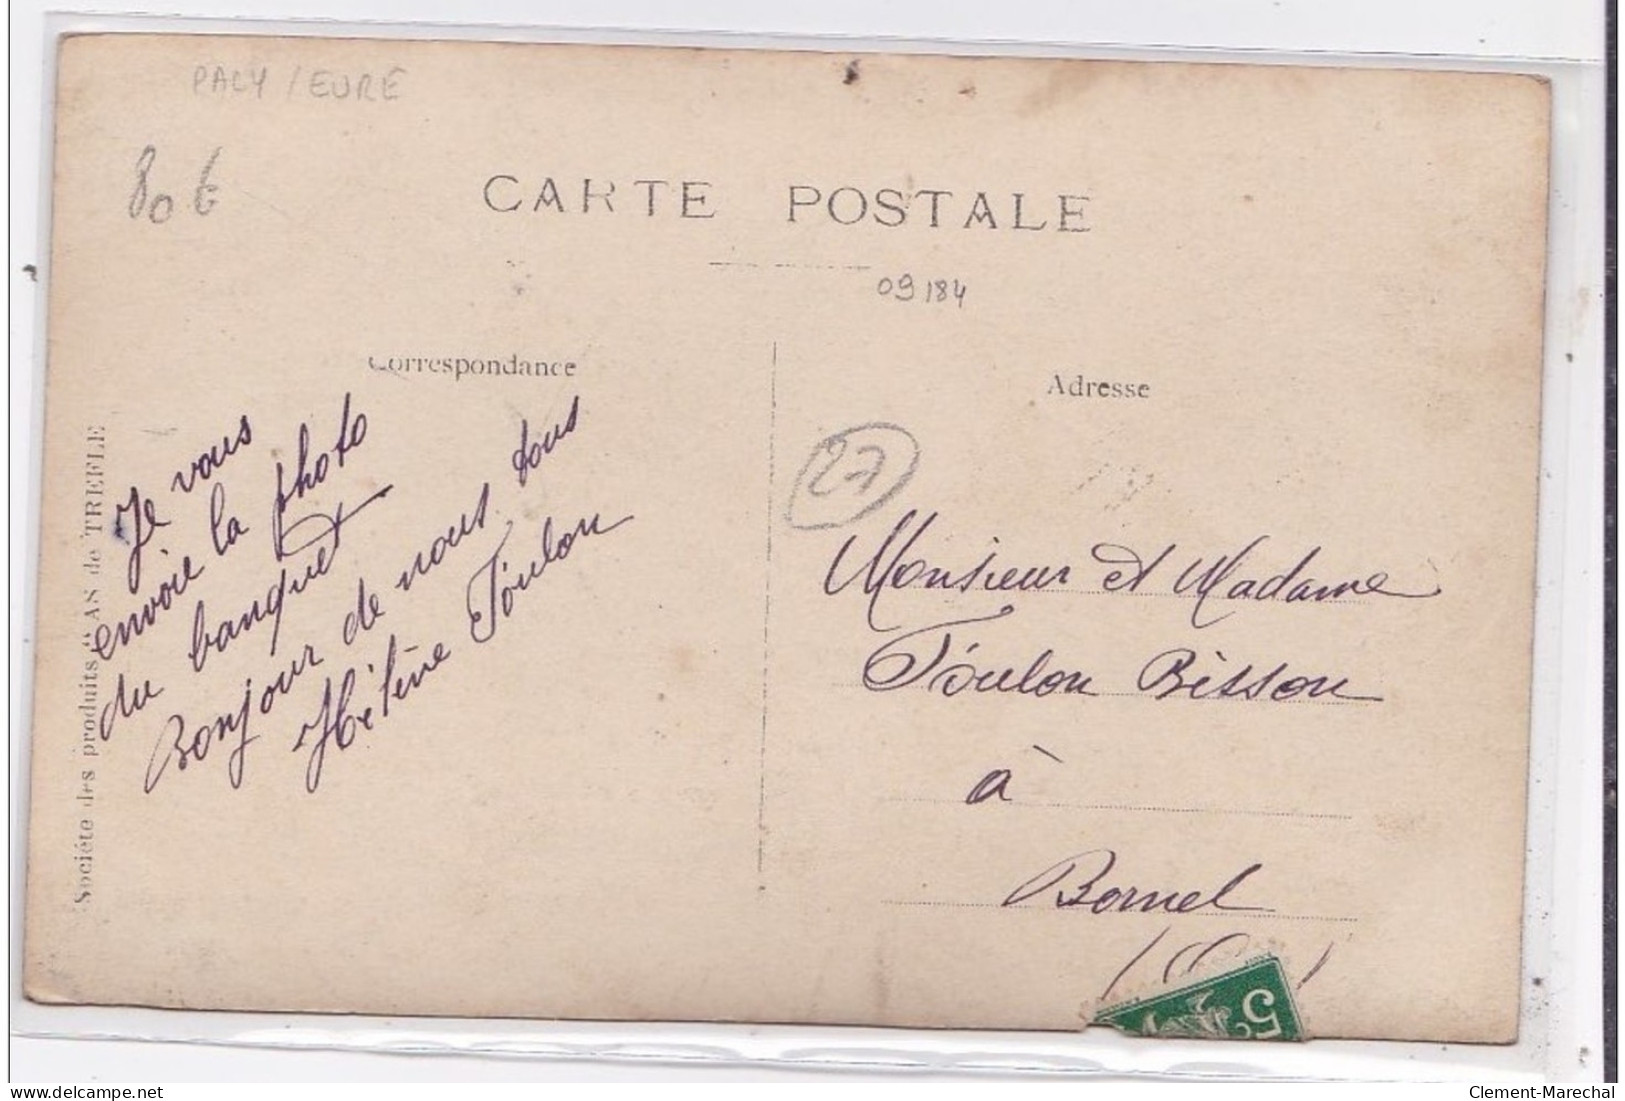 PACY / EURE
80 €
CARTE POSTALE
09184
Correspondance
Adresse
Société des produits "AS de TREFLE
Je vous
envoie la photo
du banquet
Bonjour de nous tous
Hélène Toulon
27
Monsieur et Madame
Toulon Bisson
à
Bornel
5c
Clement-Marechal